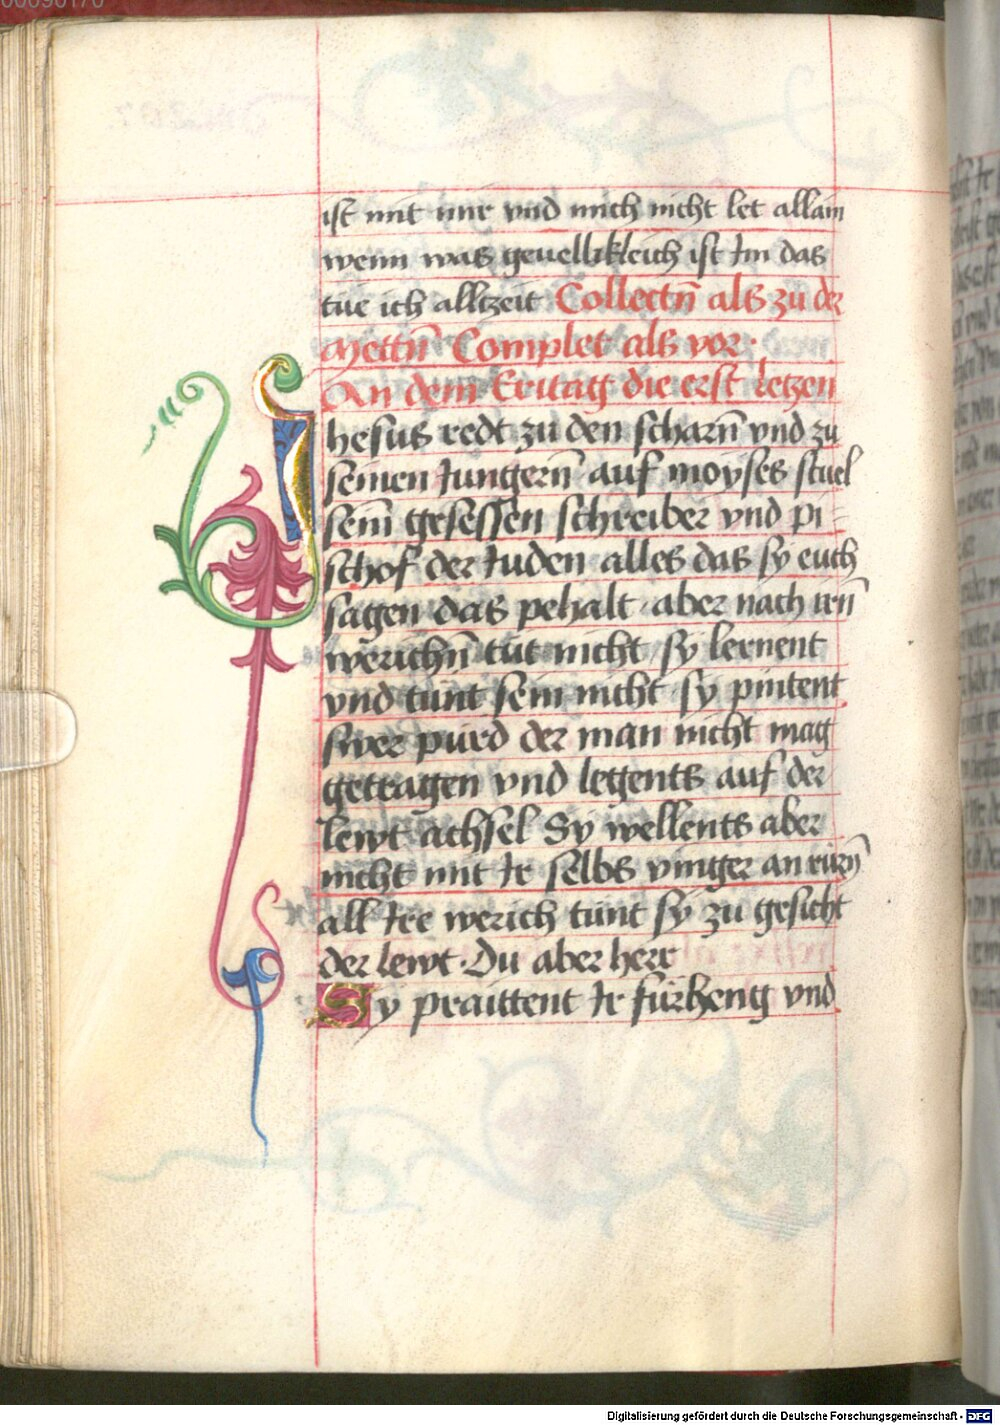 ist mit mir vnd mich nicht let allain
wenn was geuellikleich ist Im das
tue ich allczeit Collectn̄ als zu der
Mettn̄ Complet als vor·
An dem Eritag die erst letzen
Ihesus redt zu den scharn̄ vnd zu
seinen Iungern̄ auf moyses stuel
sein̄ gesessen schreiber vnd pi=
schof der Iuden alles das sy euch
sagen das pehalt· aber nach irn̄
werichn̄ tut nicht sy lernent
vnd tunt sein nicht sy pintent
swer purd der man nicht mag
getragen vnd legents auf der
lewt achsel Sy wellents aber
nicht mit Ir selbs vinger an rurn̄
all Ire werich tunt sy zu gesicht
der lewt· Du aber herr
Sy praittent Ir furheng vnd
Digitalisierung gefördert durch die Deutsche Forschungsgemeinschaft - DFG